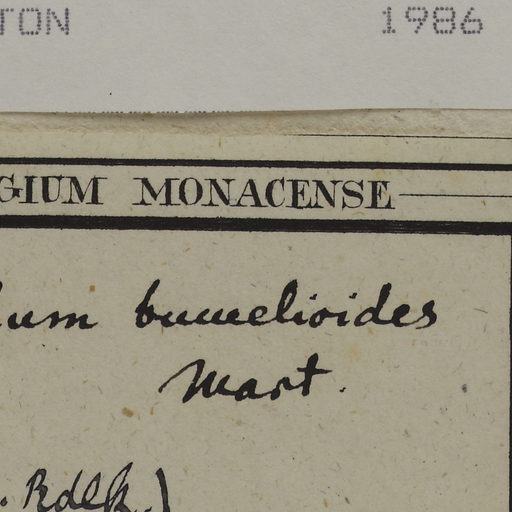 TON 1986
GIUM MONACENSE
um bumelioides
Mart.
. Rdlk.)